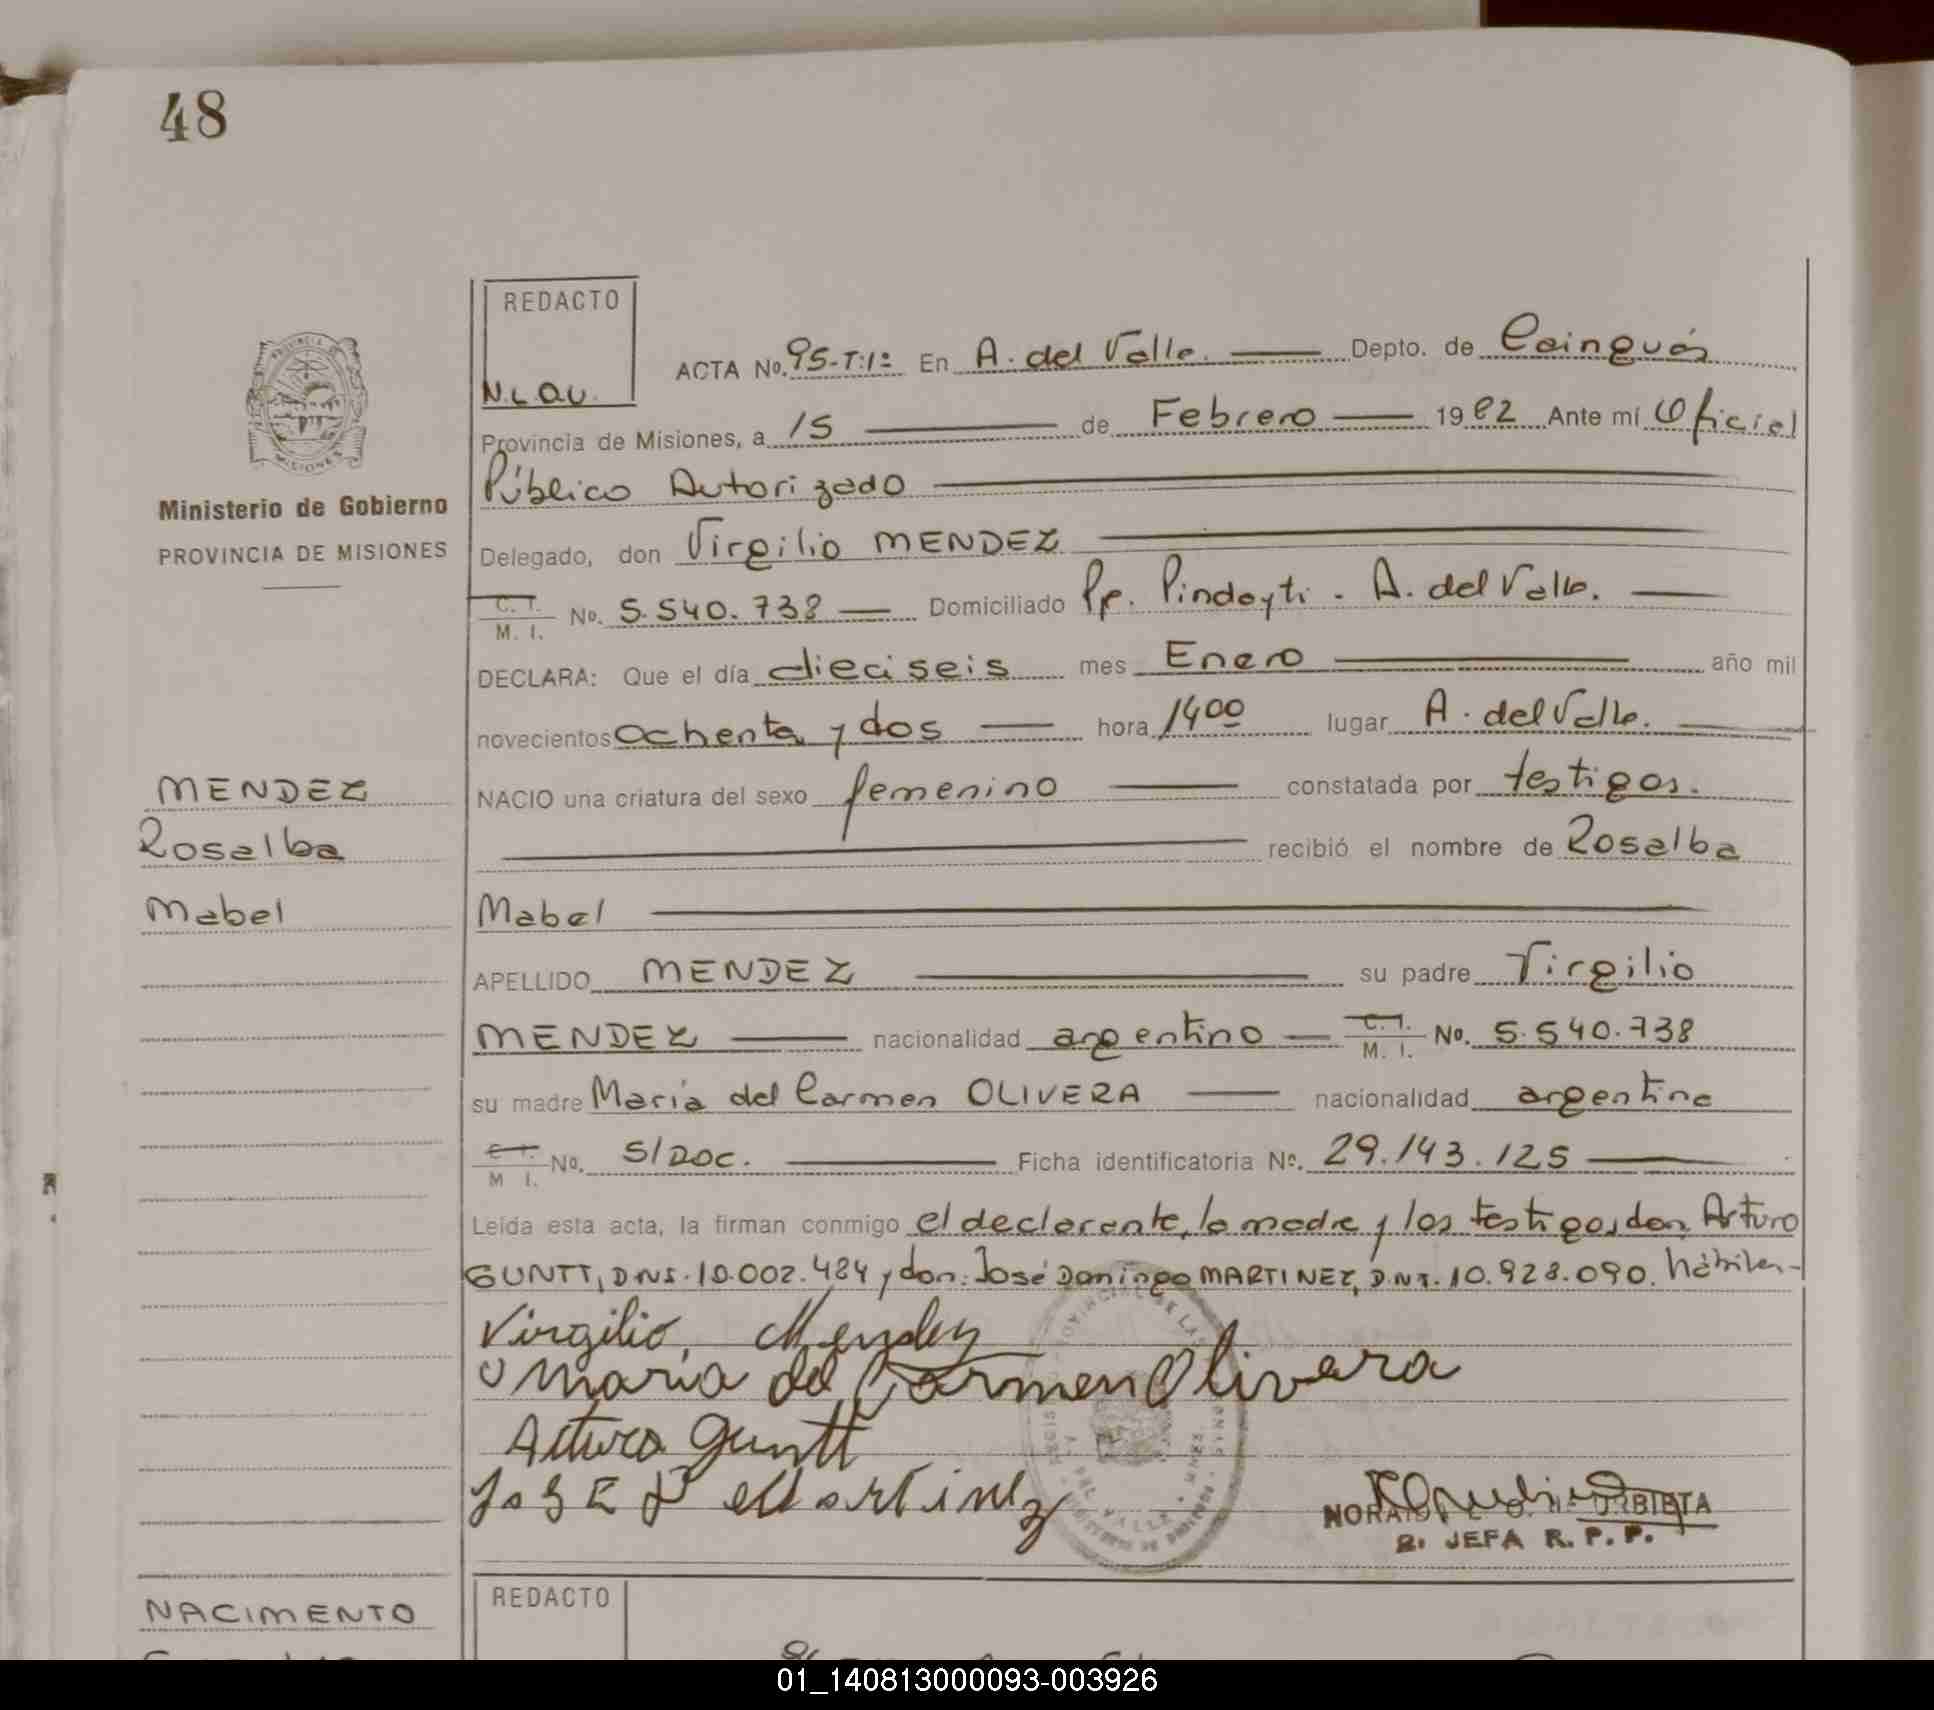 48
REDACTO
N.L.O.U.
ACTA No. 95-T:1= En A. del Valle. Depto. de Cainguás
Provincia de Misiones, a 15 de Febrero 1982 Ante mí Oficial
Público Autorizado
Ministerio de Gobierno
PROVINCIA DE MISIONES
Delegado, don Virgilio MENDEZ
C. I. M. I. No. 5.540.738 Domiciliado Pje. Pindayti - A. del Valle.
DECLARA: Que el día dieciseis mes Enero año mil
novecientos ochenta y dos hora 1400 lugar A. del Valle.
MENDEZ
Rosalba
Mabel
NACIO una criatura del sexo femenino constatada por testigos.
recibió el nombre de Rosalba
Mabel
APELLIDO MENDEZ su padre Virgilio
MENDEZ nacionalidad argentino C. I. M. I. No. 5.540.738
su madre María del Carmen OLIVERA nacionalidad argentina
C. I. M. I. No. S/DOC. Ficha identificatoria No. 29.143.125
Leída esta acta, la firman conmigo el declarante, la madre y los testigos, don, Arturo
GUNTT, D.N.I. 10.002.484 y don: José Domingo MARTINEZ, D.N.I. 10.928.090. hábiles-
Virgilio, Mendez
Maria del Carmen Olivera
Arturo Guntt
JoSE D Martinez
JEFA R. P. P.
NACIMENTO
REDACTO
01_140813000093-003926